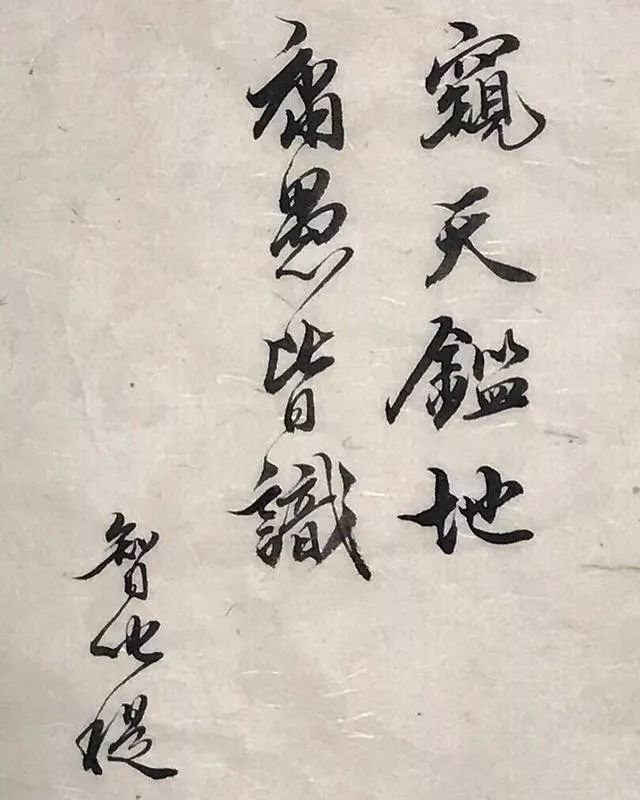 窺天鑑地
庸愚皆識
智化提